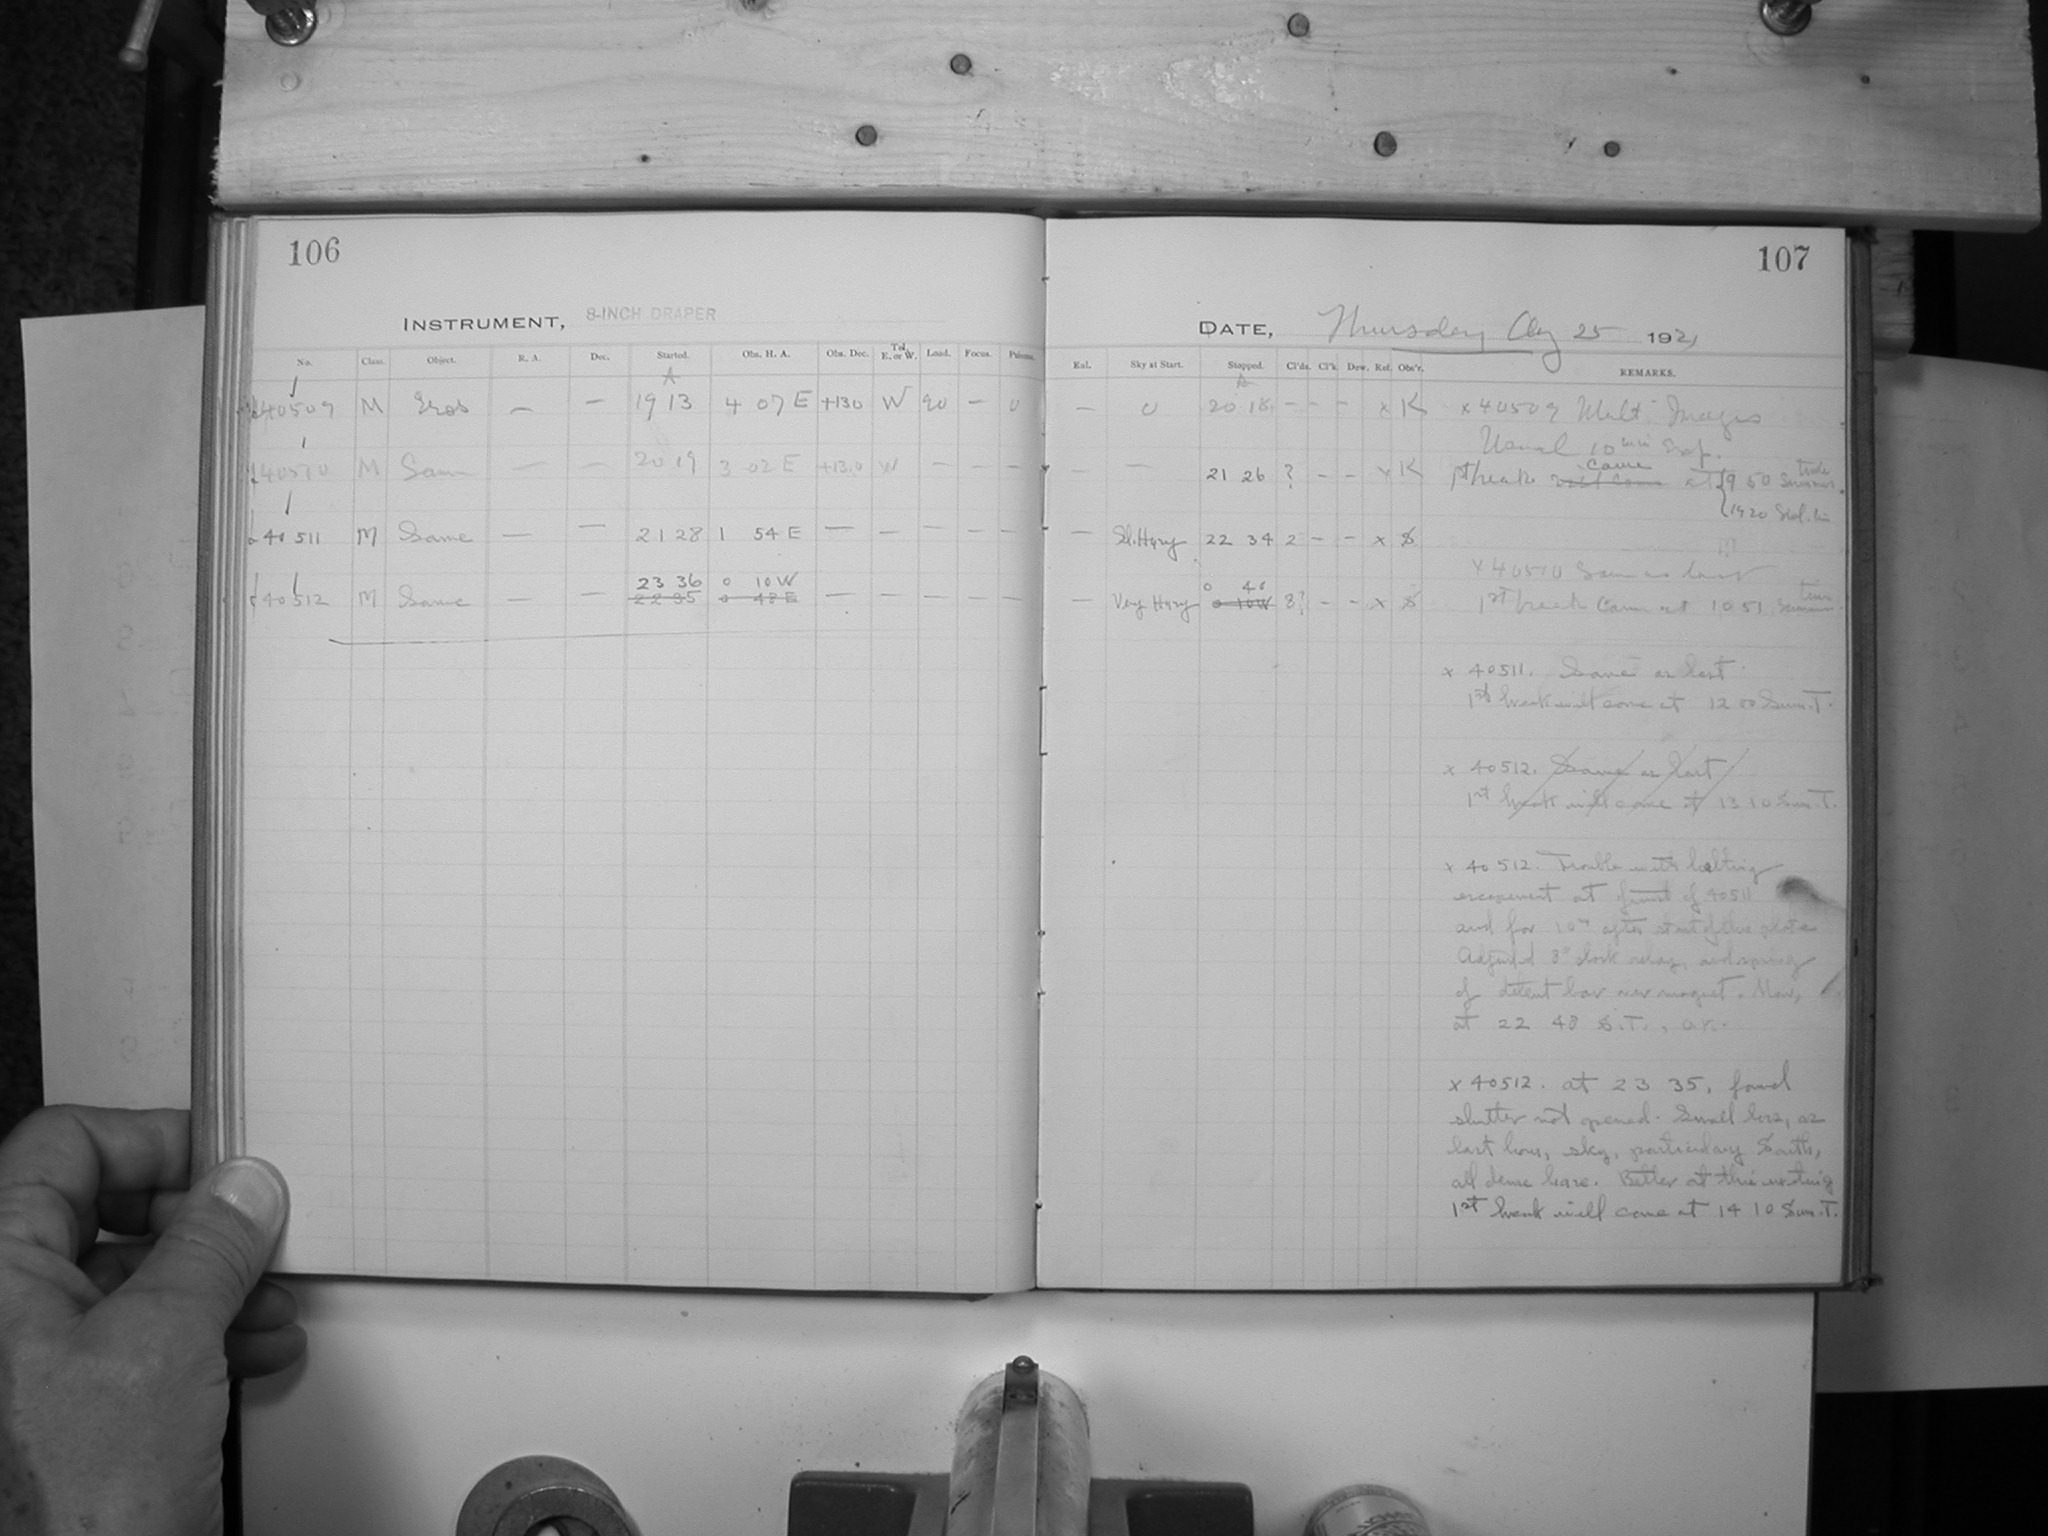 106
INSTRUMENT, 8-INCH DRAPER
No. Class. Object. R. A. Dec. Started. Obs. H. A. Obs. Dec. Tel. E. or W. Load. Focus. Prisms.
A
40509 M Eros — — 19 13 4 07 E +13 0 W 90 — 0
40510 M Same — — 20 19 3 02 E +13.0 W — — —
40511 M Same — — 21 28 1 54 E — — — — —
23 36 0 10 W
40512 M Same — — 22 35 0 48 E — — — — —
107
DATE, Thursday Aug 25 1921
Sky at Start. Stopped. Cl'ds. Cl'k. Dew. Ref. Obs'r. REMARKS.
— 0 20 18 — — — x K x 40509 Mult. Images
Usual 10 min Exp.
— — 21 26 ? — — x K 1st break came at 9 50 Summer
19 20 Sid.
— Sl. Hazy 22 34 2 — — x S
x 40510 Same as last
0 40
— Very Hazy 0 10 W 8? — — x S 1st break came at 10 51 Summer time
x 40511. Same as last
1st break will come at 12 00 Sum. T.
x 40512. Same as last
1st break will come at 13 10 Sum. T.
x 40512. Trouble with halting
escapement at finish of 40511
and for 10m after start of this plate
Adjusted 8" clock relay, and spring
of detent bar over magnet. Now,
at 22 48 S.T., O.K.
x 40512. at 23 35, found
shutter not opened. Small loss, as
last hour, sky, particulary South,
all dense haze. Better at this writing
1st break will come at 14 10 Sum. T.